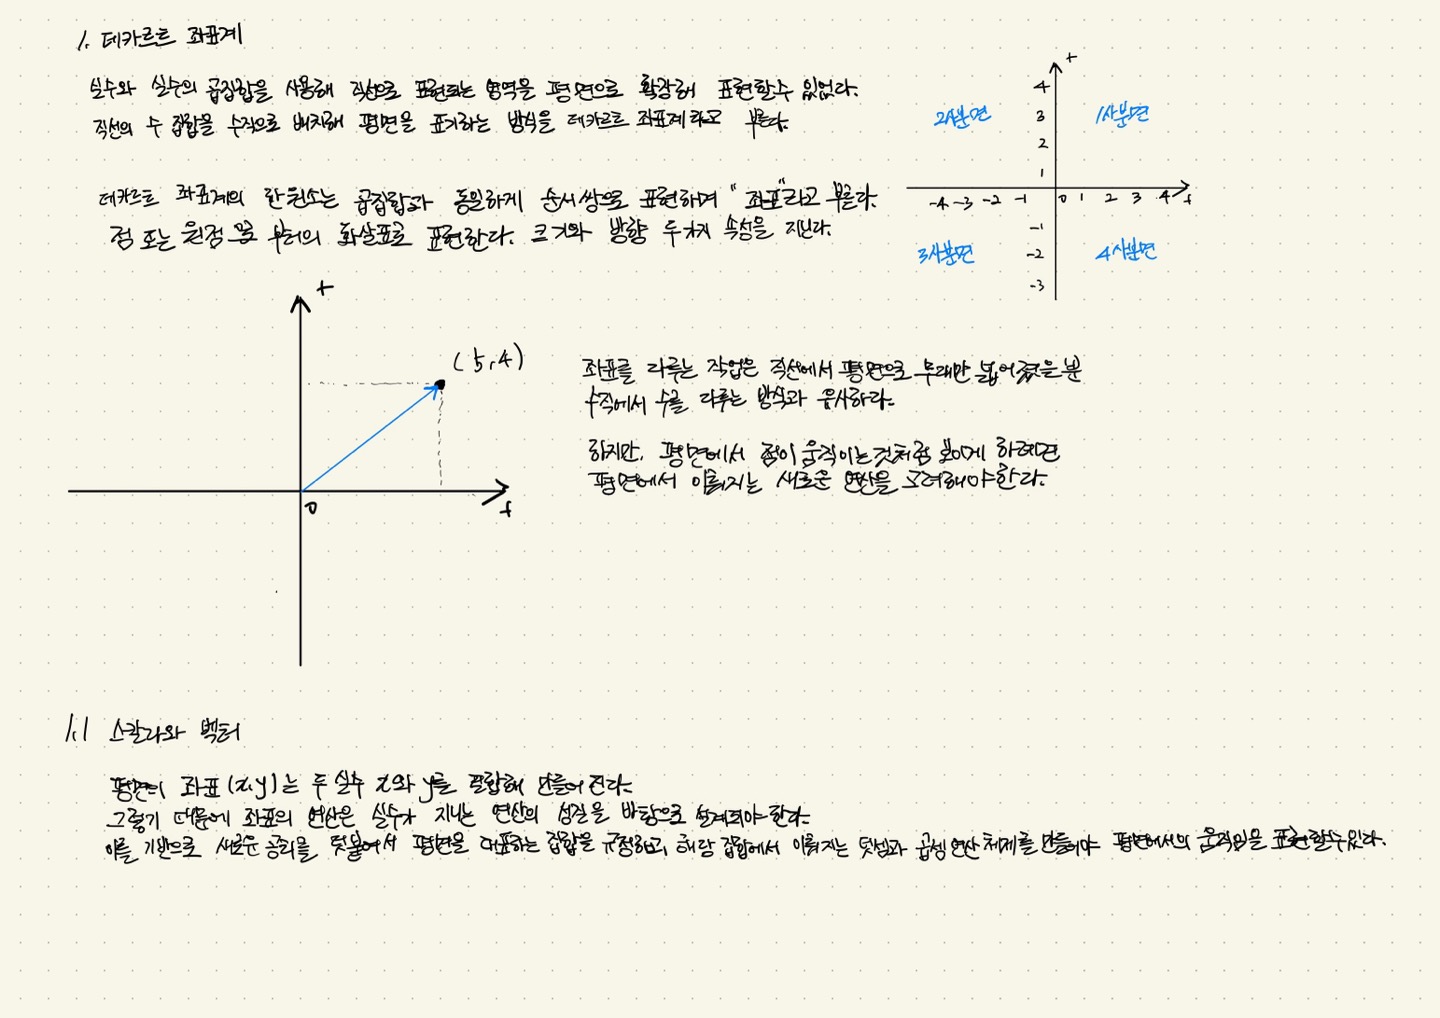 1. 데카르트 좌표계
실수와 실수의 곱집합을 사용해 직선으로 표현되는 영역을 평면으로 확장해 표현할수 있었다.
직선의 수 집합을 수직으로 배치해 평면을 표기하는 방식을 데카르트 좌표계라고 부른다.
데카르트 좌표계의 한 원소는 곱집합과 동일하게 순서쌍으로 표현하며 "좌표"라고 부른다.
점 또는 원점으로 부터의 화살표로 표현한다. 크기와 방향 두가지 속성을 지닌다.
+
4
2사분면 3 1사분면
2
1
-4 -3 -2 -1 0 1 2 3 4 +
-1
3사분면 -2 4사분면
-3
+
(5,4)
0
+
좌표를 다루는 작업은 직선에서 평면으로 무대만 넓어졌을 뿐
수직에서 수를 다루는 방식과 유사하다.
하지만, 평면에서 점이 움직이는것처럼 보이게 하려면
평면에서 이뤄지는 새로운 연산을 고려해야한다.
1.1 스칼라와 벡터
평면의 좌표 (x,y)는 두 실수 x와 y를 결합해 만들어 진다.
그렇기 때문에 좌표의 연산은 실수가 지니는 연산의 성질을 바탕으로 설계되야 한다.
이를 기반으로 새로운 공리를 덧붙여서 평면을 대표하는 집합을 규정하고, 해당 집합에서 이뤄지는 덧셈과 곱셈 연산 체계를 만들어야 평면에서의 움직임을 표현할수있다.